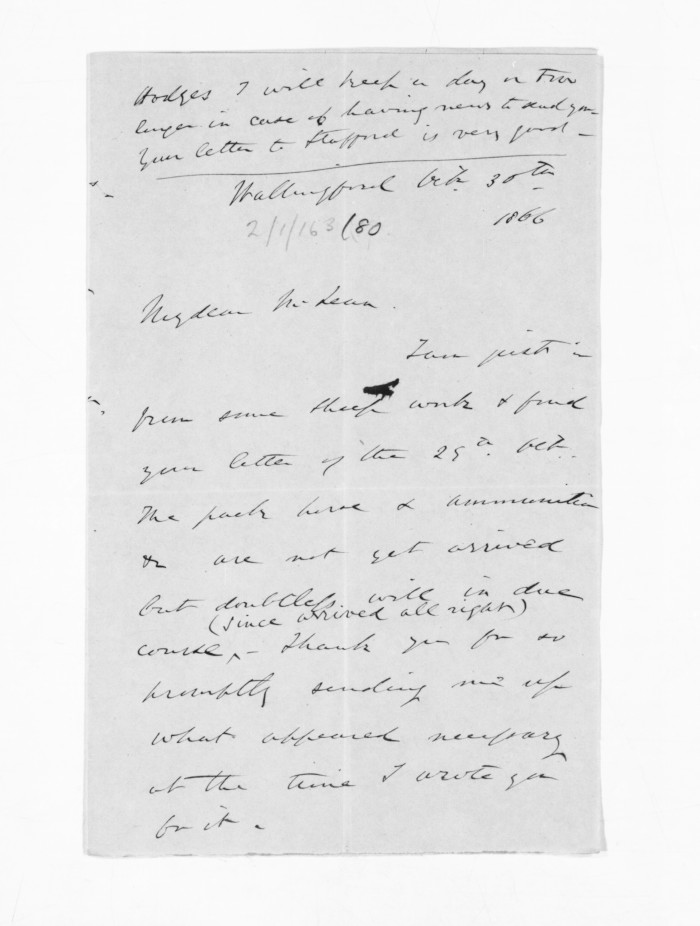 Hodges I will keep a day or two
longer in case of having news to send you
Your letter to Stafford is very good -
Wallingford Octr. 30th
1866
2/1/163 (80
My dear McLean.
I am just in
from some sheep work & find
your letter of the 29th. Octr.
The pack horse & ammunition
&c are not yet arrived
but doubtless will in due
(since arrived all right)
course, - Thank you for so
promptly sending me up
what appeared necessary
at the time I wrote you
for it.